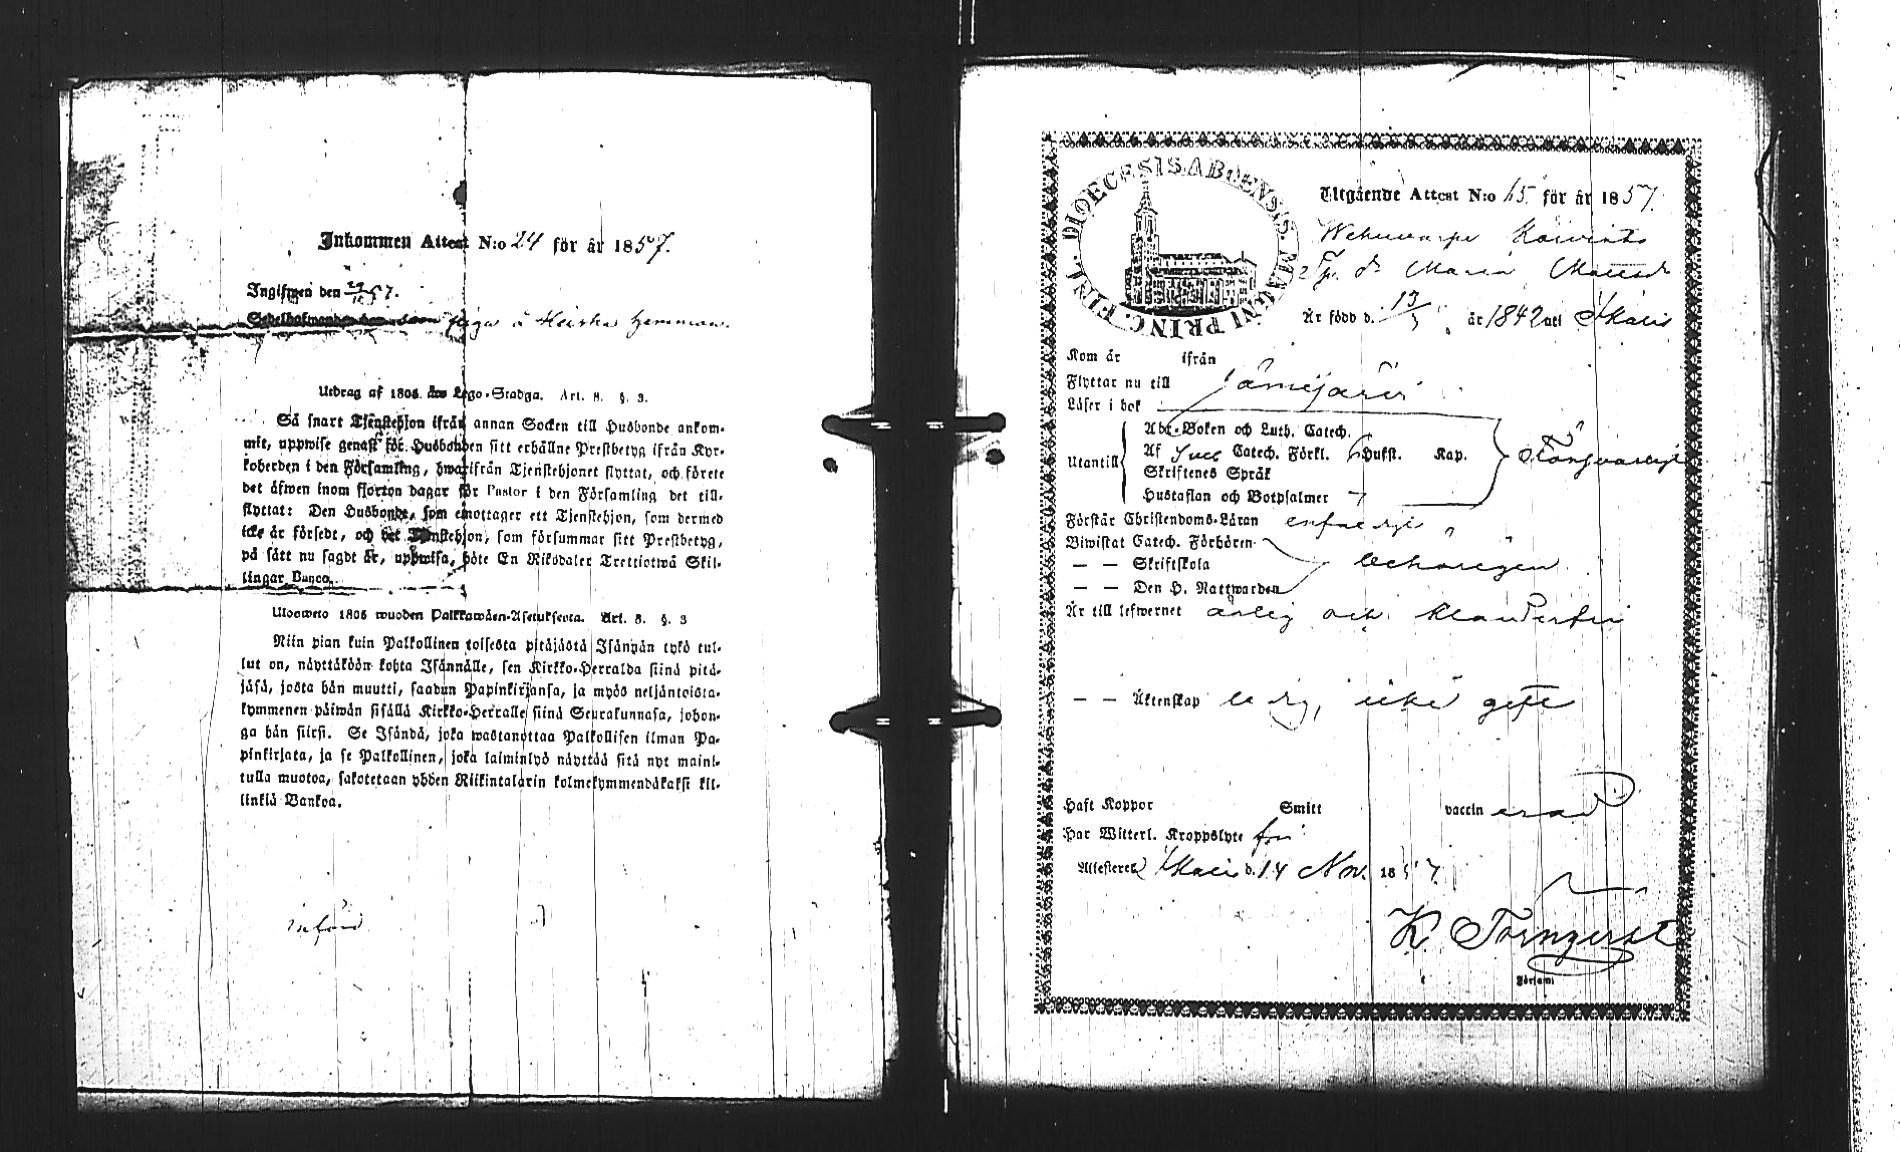 Inkommen Attest N:o 24 för år 1857.
Ingifwen den 29/12 57.
piga å Heiska hemman.
Utdrag af 1805 års Lego-Stadga. Art. 8. §. 3.
Så snart Tjenstehjon ifrån annan Socken till Husbonde ankom-
mit, uppwise genast för Husbonden sitt erhållne Prestbetyg ifrån Kyr-
koherden i den Församling, hwarifrån Tjenstehjonet flyttat, och förete
det äfwen inom fjorton dagar för Pastor i den Församling det till-
flyttat: Den Husbonde, som emottager ett Tjenstehjon, som dermed
icke är försedt, och det Tjenstehjon, som försummar sitt Prestbetyg,
på sätt nu sagdt är, uppwisa, böte En Riksdaler Trettiotwå Skil-
lingar Banco.
Ulosweto 1805 wuoden Palkkawäen-Asetuksesta. Art. 8. §. 3
Niin pian kuin Palkollinen toisesta pitäjästä Isännän tykö tul-
lut on, näyttäköön kohta Isännälle, sen Kirkko-Herralda siinä pitä-
jäsä, josta hän muutti, saadun Papinkirjansa, ja myös neljäntoista-
kymmenen päiwän sisällä Kirkko-Herralle siinä Seurakunnasa, johon-
ga hän siirsi. Se Isändä, joka wastanottaa Palkollisen ilman Pa-
pinkirjata, ja se Palkollinen, joka laiminlyö näyttää sitä nyt maini-
tulla muotoa, sakotetaan yhden Riikintalarin kolmekymmendäkaksi kil-
linkiä Bankoa.
införd
DIOECESIS ABOENSIS. MAGNI PRINC. FINL.
Utgående Attest N:o 65 för år 1857.
Maria
Är född d. 13/3 år 1842 att Ikalis
Kom år ifrån
Flyttar nu till Jämijärvi
Läser i bok
Utantill
Abc-Boken och Luth. Catech.
Af Sveb. Catech. Förkl. 6 Hufst. Kap.
Skriftenes Språk
Hustaflan och Botpsalmer 7
Förstår Christendoms-Läran enfaldigt
Biwistat Catech. Förhören
— — Skriftskola behörigen
— — Den H. Nattwarden
Är till lefwernet ärlig och klanderfri
— — Äktenskap ledig, icke gift
Haft Koppor Smitt vaccinerad
Har Witterl. Kroppslyte fri
Attesterad Ikalis d. 14 Nov. 1857.
K Törnqvist
Församl